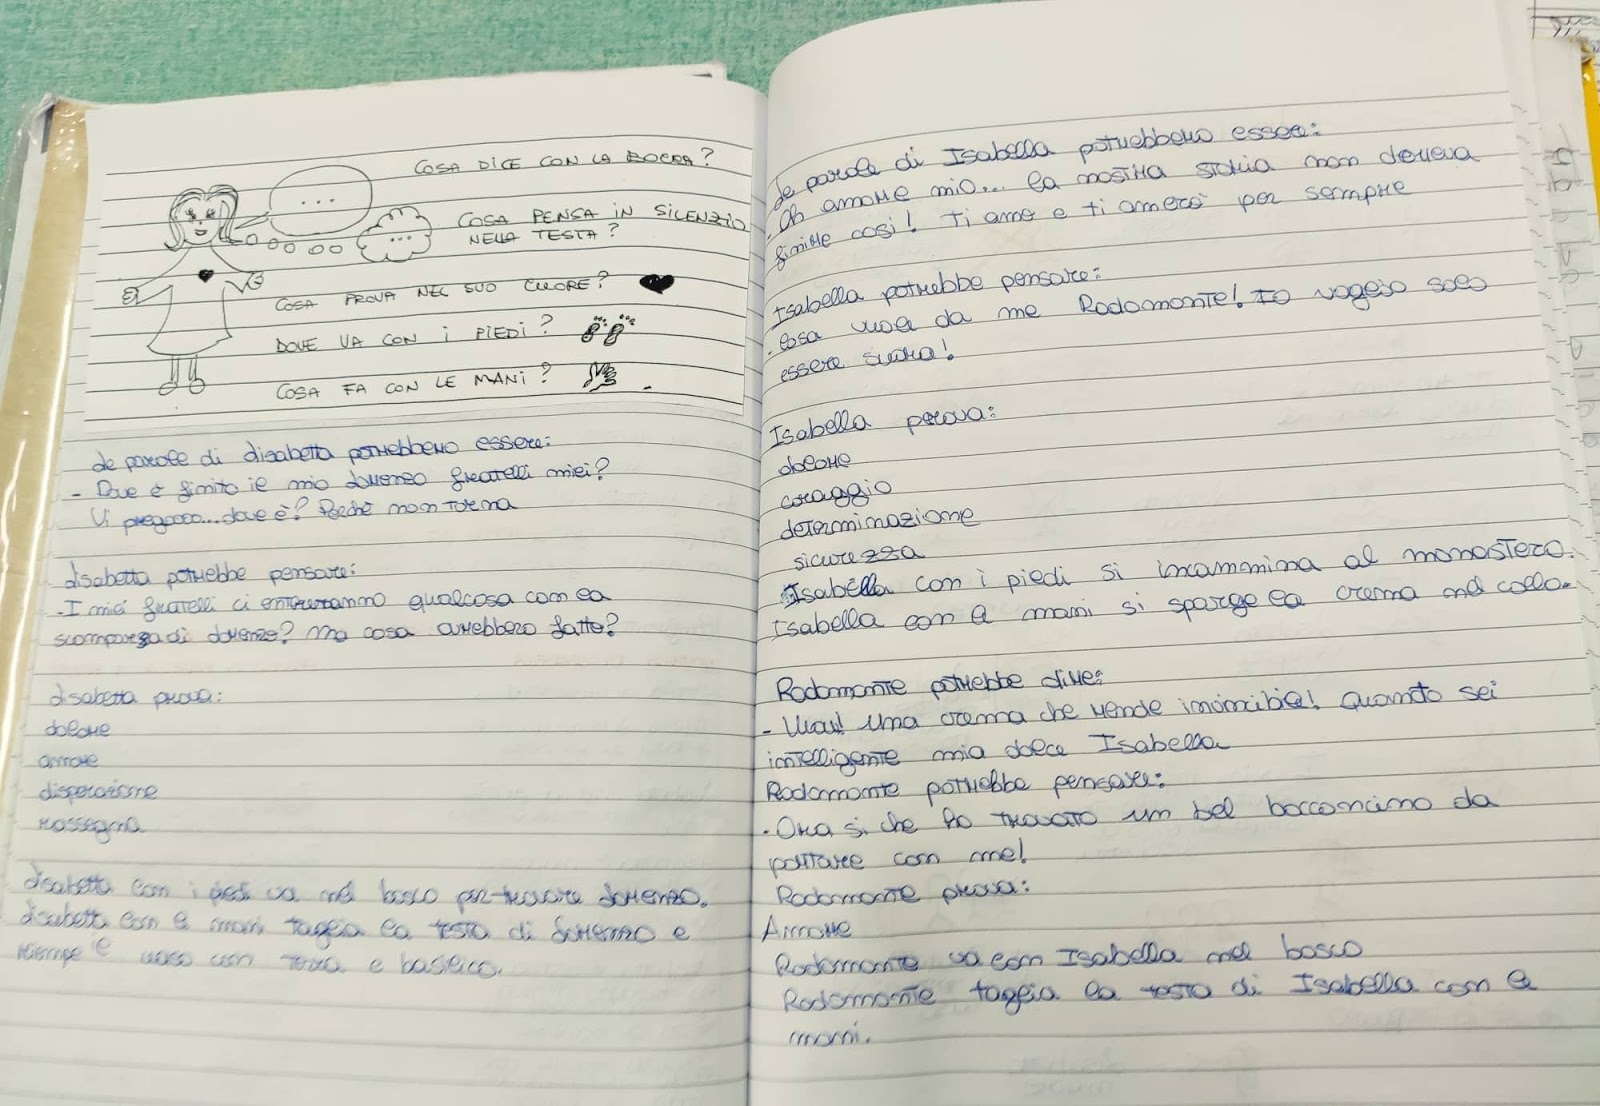 ...
COSA DICE CON LA BOCCA?
...
COSA PENSA IN SILENZIO
NELLA TESTA?
COSA PROVA NEL SUO CUORE?
DOVE VA CON I PIEDI?
COSA FA CON LE MANI?
Le parole di Lisabetta potrebbero essere:
- Dove è finito il mio Lorenzo fratelli miei?
Vi pregoooo... dove è? Perché non torna
Lisabetta potrebbe pensare:
- I miei fratelli ci entreranno qualcosa con la
scomparsa di Lorenzo? Ma cosa avrebbero fatto?
Lisabetta prova:
dolore
amore
disperazione
rassegna
Lisabetta con i piedi va nel bosco per trovare Lorenzo.
Lisabetta con le mani taglia la testa di Lorenzo e
riempe il vaso con terra e basilico.
Le parole di Isabella potrebbero essere:
- Oh amore mio... la nostra storia non doveva
finire così! Ti amo e ti amerò per sempre
Isabella potrebbe pensare:
- Cosa vuole da me Rodomonte! Io voglio solo
essere suora!
Isabella prova:
dolore
coraggio
determinazione
sicurezza
Isabella con i piedi si incammina al monastero.
Isabella con le mani si sparge la crema nel collo.
Rodomonte potrebbe dire:
- Wow! Una crema che rende invincibile! Quanto sei
intelligente mia dolce Isabella
Rodomonte potrebbe pensare:
- Ora si che ho trovato un bel bocconcino da
portare con me!
Rodomonte prova:
Amore
Rodomonte va con Isabella nel bosco
Rodomonte taglia la testa di Isabella con le
mani.